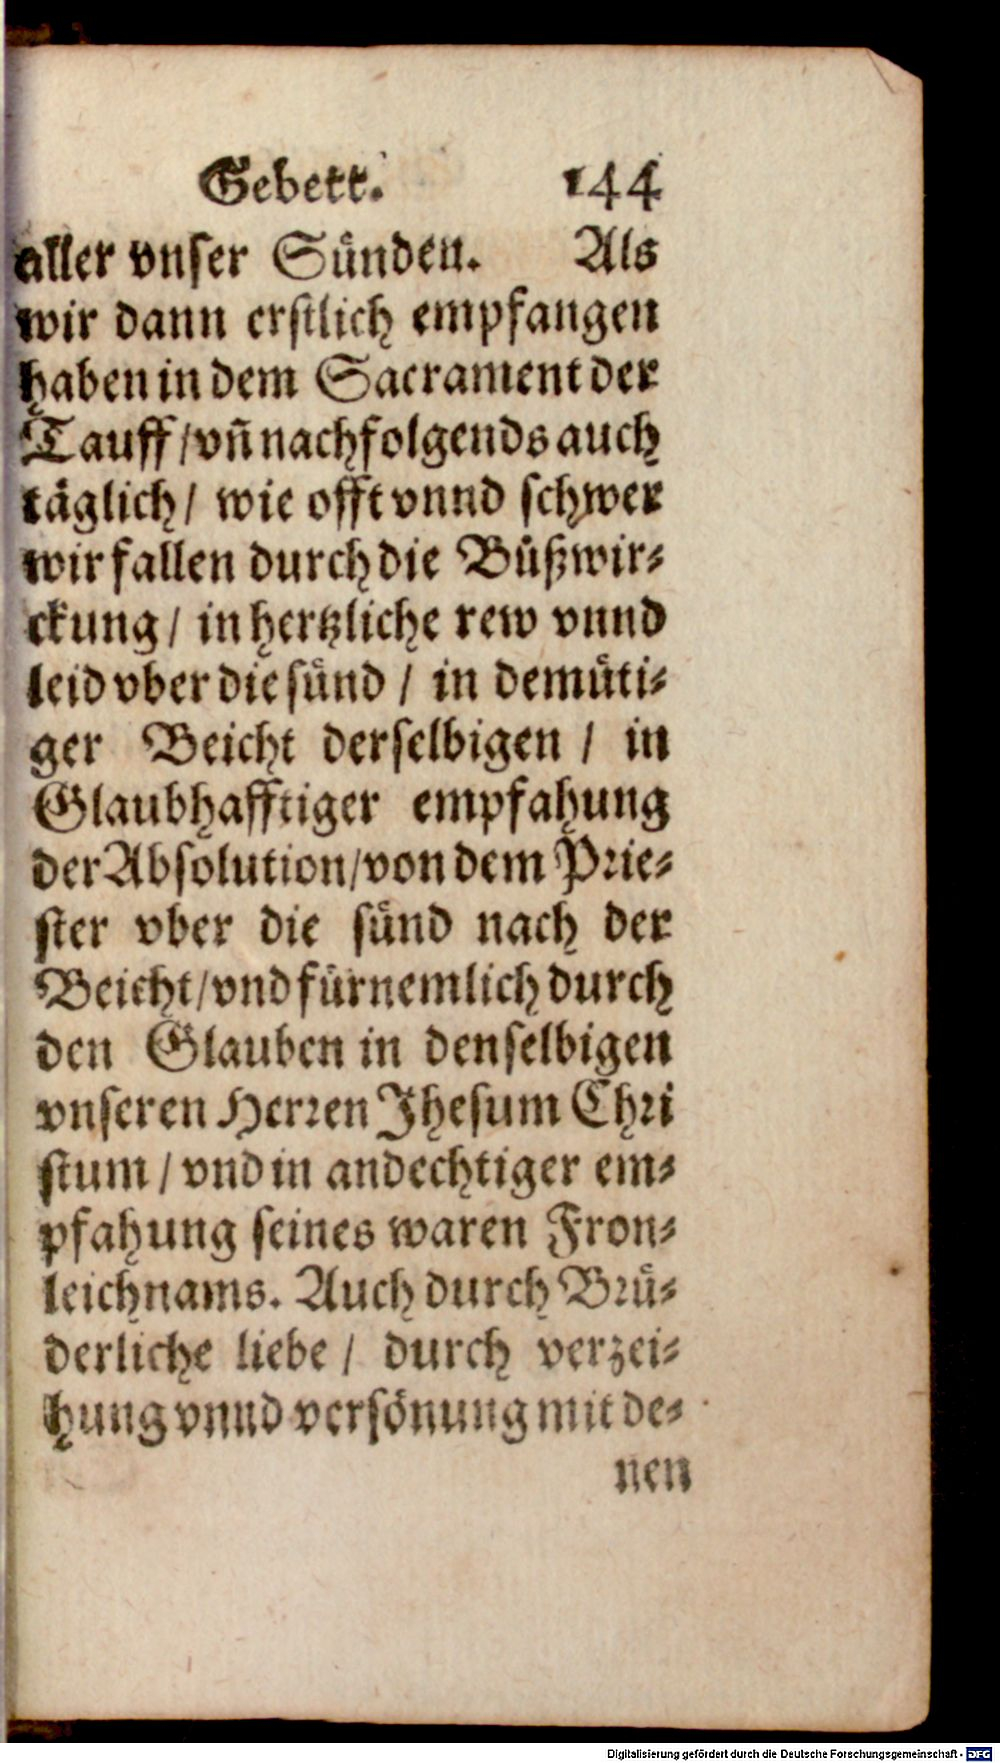 Gebett. 144
aller vnser Sünden. Als
wir dann erstlich empfangen
haben in dem Sacrament der
Tauff / vñ nachfolgends auch
täglich / wie offt vnnd schwer
wir fallen durch die Bůßwir-
ckung / in hertzliche rew vnnd
leid vber die sünd / in demüti-
ger Beicht derselbigen / in
Glaubhafftiger empfahung
der Absolution / von dem Prie-
ster vber die sünd nach der
Beicht / vnd fürnemlich durch
den Glauben in denselbigen
vnseren Herren Jhesum Chri
stum / vnd in andechtiger em-
pfahung seines waren Fron-
leichnams. Auch durch Brü-
derliche liebe / durch verzei-
hung vnnd versönung mit de-
nen
Digitalisierung gefördert durch die Deutsche Forschungsgemeinschaft - DFG